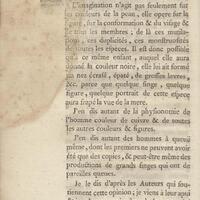 L'imagination n'agit pas seulement sur
les couleurs de la peau, elle opere sur la
sur la conformation & du visage &
tous les membres; de là ces mutila-
tions, ces duplicités, ces monstruosités
de toutes les especes. Il est donc possible
qu'à ce même enfant, auquel elle aura
donné la couleur noire, elle lui ait formé
un nez écrasé, épaté, de grosses levres,
&c. parce que quelque singe, quelque
figure, quelque portrait de cette espece
aura frapé la vue de la mere.
J'en dis autant de la physionomie de
l'homme couleur de cuivre & de toutes
les autres couleurs & figures.
J'en dis autant des hommes à queue
même, dont les premiers ne peuvent avoir
été que des copies, & peut-être même des
productions de grands singes qui ont de
pareilles queues.
Je le dis d'après les Auteurs qui sou-
tiennent cette opinion; je viens à leur apui